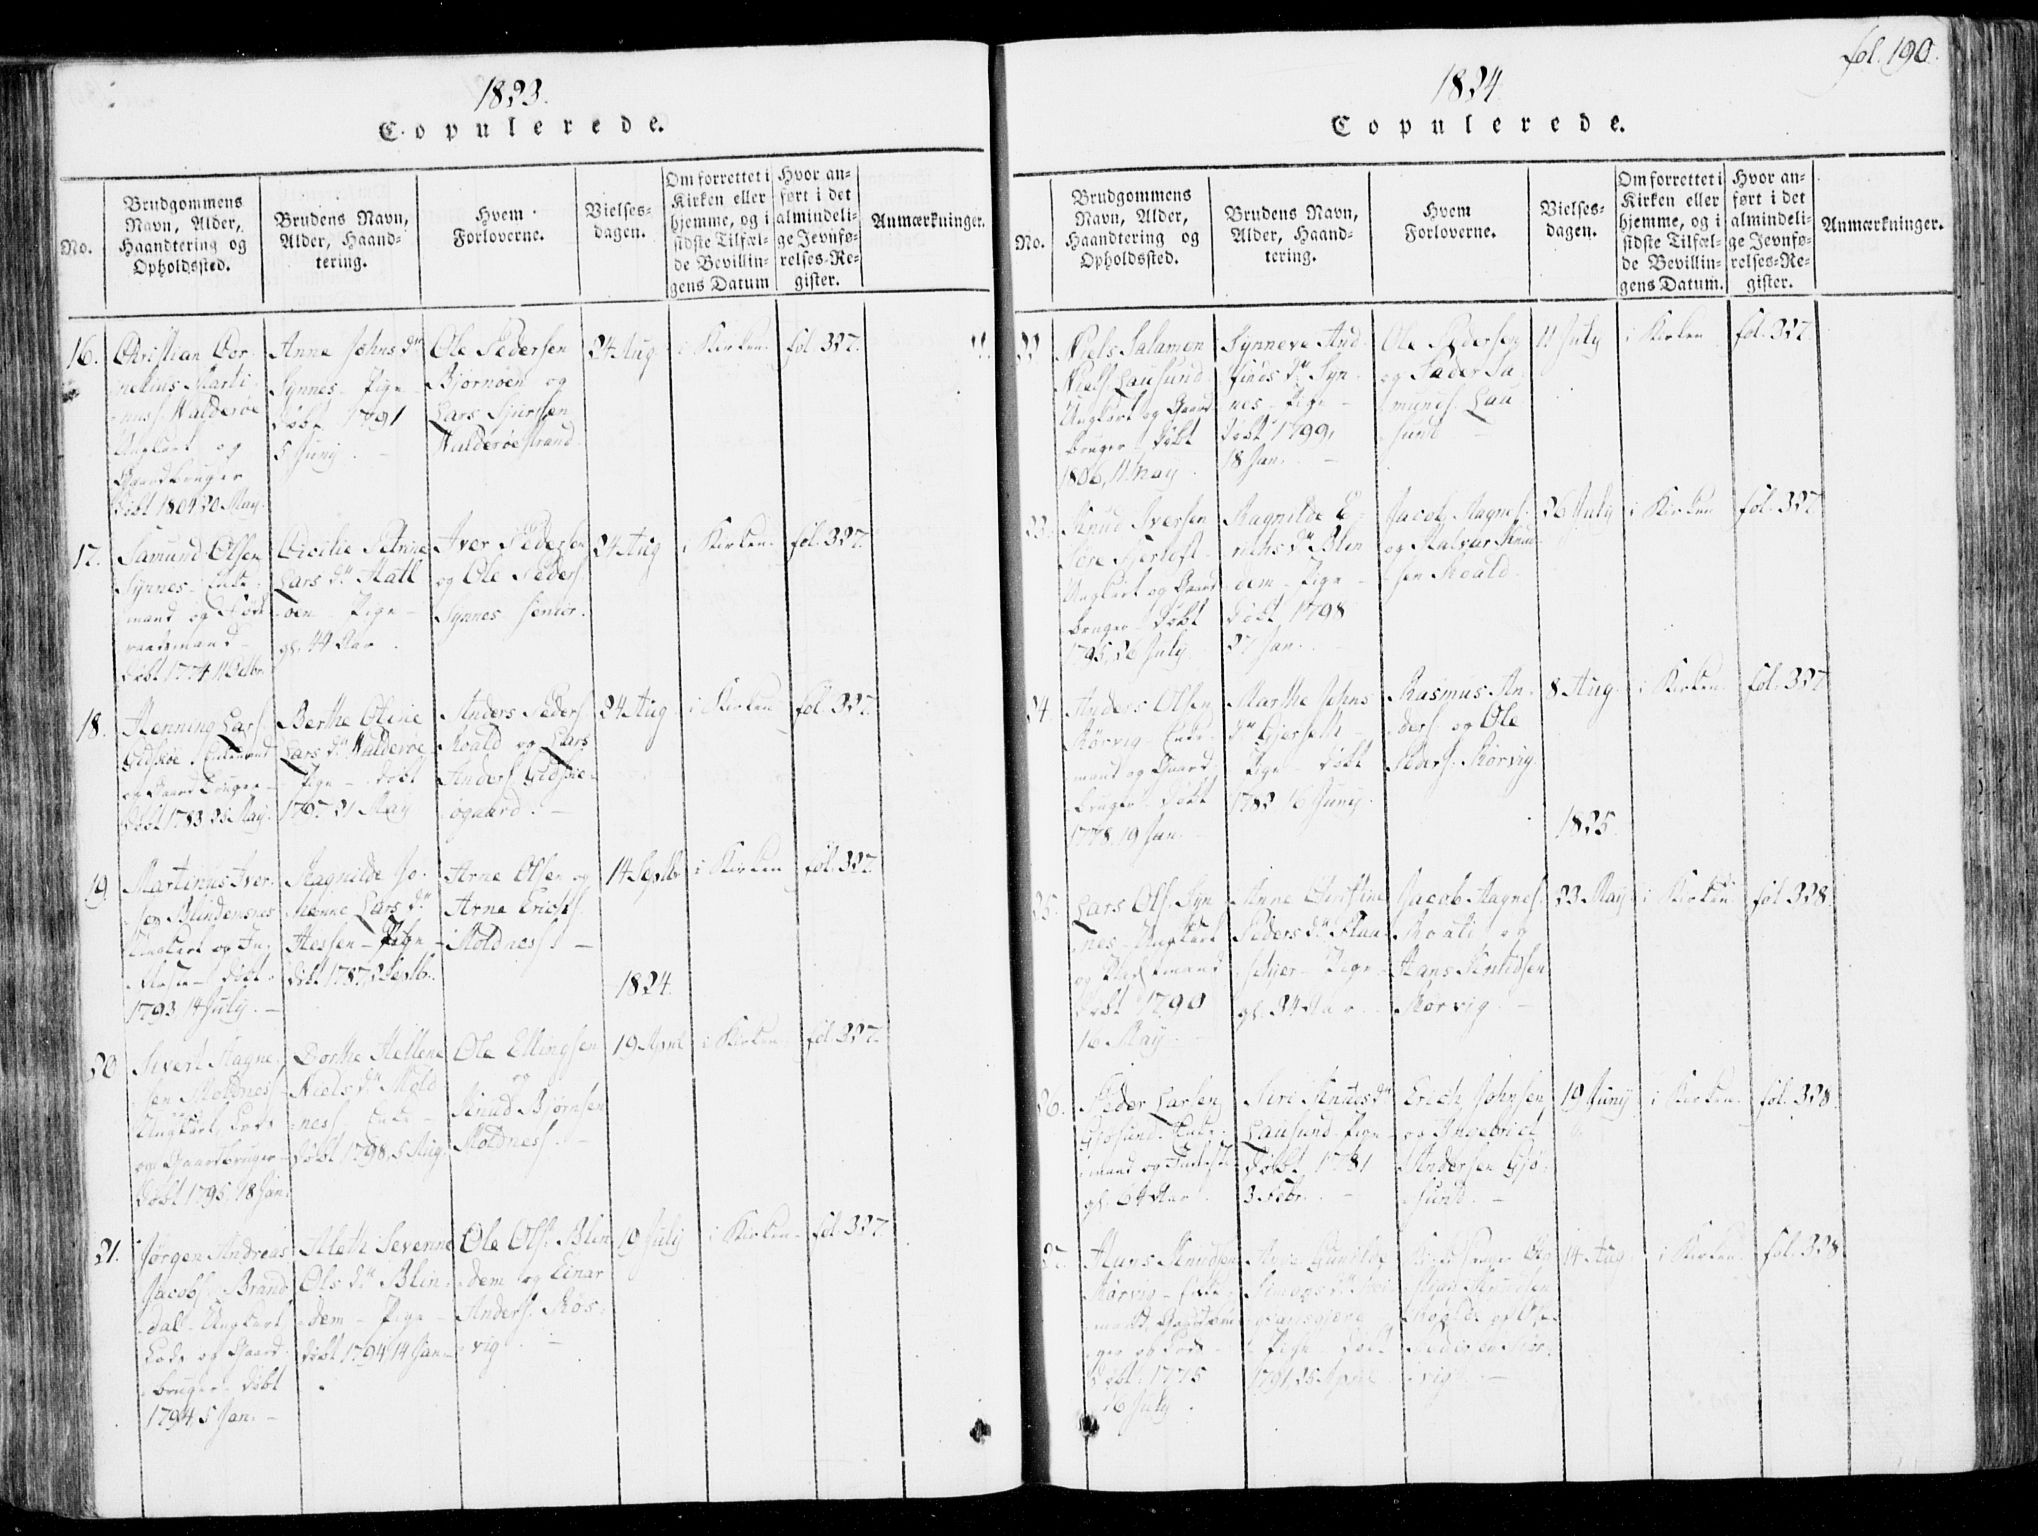 fol. 190.
1823.
Copulerede.
No.
Brudgommens
Navn, Alder,
Haandtering og
Opholdssted.
Brudens Navn,
Alder, Haand-
tering.
Hvem
Forloverne.
Vielses-
dagen.
Om forrettet i
Kirken eller
hjemme, og i
sidste Tilfæl-
de Bevillin-
gens Datum
Hvor an-
ført i det
almindeli-
ge Jevnfø-
relses-Re-
gister.
Anmærkninger.
16.
Christian Cor-
nelius Marti-
nuss. Walderøe
Ungkarl og
Gaardbruger
Døbt 1804 20 May.
Anne Johns Dr
Synnes - Pige -
døbt 1791
5 Juny. -
Ole Pedersen
Bjørnøen og
Lars Sjursen
Walderøestrand.
24 Aug
i Kirken.
fol. 327.
17.
Samund Olsen
Synnes - Enke-
mand og Føde-
raadsmand -
Døbt 1774 11
Cicilie Petrine
Lars Dr Hatl
øen - Pige -
gl. 44 Aar.
Iver Pedersen
og Ole Peders.
Synnes senior.
24 Aug
i Kirken.
fol. 327.
18.
Henning Lars.
Gidskøe Enkemand
og Gaardbruger -
Døbt 1783 25 May.
Berthe Oline
Lars Dr Walderøe
- Pige - Døbt
1797 21 May
Anders Peders.
Roald og Lars
Anders. Gidskøe-
øgaard. -
24 Aug
i Kirken
fol. 327.
19.
Martinus Iver-
sen Blindemsnes
Ungkarl og In-
derste - døbt
1793 14 July. -
Ragnilde Jo-
hanne Lars Dr
Hessen - Pige -
døbt 1787, 2 Septb.
Arne Olsen og
Arne Erichs.
Moldness. -
14 Septbr
i Kirken
fol. 327.
1824.
20
Sivert Magne-
sen Moldness.
Ungkarl, Lods
og Gaardbruger -
Døbt 1795, 18 Jan.
Dorthe Hellene
Niels Dr Mold
ness Enke -
døbt 1798, 5 Aug.
Ole Ellingsen
og
Knud Bjørnsen
Moldness. -
19 April
i Kirken.
fol. 327.
21.
Jørgen Andreas
Jacobs. Brand
dal - Ungkarl
Lods og Gaard-
bruger - døbt
1794. 5 Jan. -
Aleth Severine
Ols Dr Blin-
dem - Pige -
døbt 1794 14 Jan. -
Ole Ols. Blin
dem og Einar
Anders. Røs-
vig. -
19 July
i Kirken.
fol. 327.
1824
Copulerede.
No.
Brudgommens
Navn, Alder,
Haandtering og
Opholdssted.
Brudens Navn,
Alder, Haand-
tering.
Hvem
Forloverne.
Vielses-
dagen.
Om forrettet i
Kirken eller
hjemme, og i
sidste Tilfæl-
de Bevillin-
gens Datum.
Hvor an-
ført i det
almindeli-
ge Jevnfø-
relses-Re-
gister.
Anmærkninger.
22
Niels Salamon
Niels. Lausund
Ungkarl og Gaard
bruger - Døbt
1806, 11 May.
Synneve And-
finds Dr Syn-
nes - Pige -
døbt 1799,
18 Jan. -
Ole Pedersen
og Peder Sa-
munds. Lau
sund -
11 July
i Kirken
fol. 327
23.
Knud Iversen
Søre Gjertoft -
Ungkarl og Gaard
bruger - Døbt
1795, 26 July.
Ragnilde E-
richs Dr Blin
dem - Pige -
døbt 1798
27 Jan.
Jacob Magnes.
og Halvar Knud-
sen Roald.
26 July
i Kirken
fol. 327
24
Anders Olsen
Rørvig - Enke-
mand og Gaard-
bruger - døbt
1778, 19 Jan. -
Marthe Johns
Dr Gjerseth -
Pige - døbt
1782, 16 Juny.
Rasmus An-
ders. og Ole
Peders. Rørvig.
8 Aug.
i Kirken.
fol. 327
1825.
25.
Lars Ols. Syn
nes - Ungkarl
og
Døbt 1790
16 May. -
Anne Christine
Peders Dr Flaa-
skjer - Pige -
gl. 24 Aar.
Jacob Magnes.
Roald og
Hans Knudsen
Rørvig. -
23 May
i Kirken.
fol. 328.
26.
Peder Larsen
Gjøsund - Enke-
mand og Inderste
gl. 64 Aar.
Siri Knuds Dr
Lausund - Pige -
Døbt 1781
3 Febr. -
Erich Johnsen
og Ingebrigt
Andersen Gjø-
sund. -
19 Juny
i Kirken.
fol. 328.
27.
Hans Knudsen
Rørvig - Enke-
mand, Gaardbru-
ger og Lods -
Døbt 1775
16 July.
Anne Gunhild
Simons Dr
- Pige - Døbt
1791, 25 April
Knudsen
Roald og Ole
Pedersen Rør-
vig. -
14 Aug
i Kirken.
fol. 328